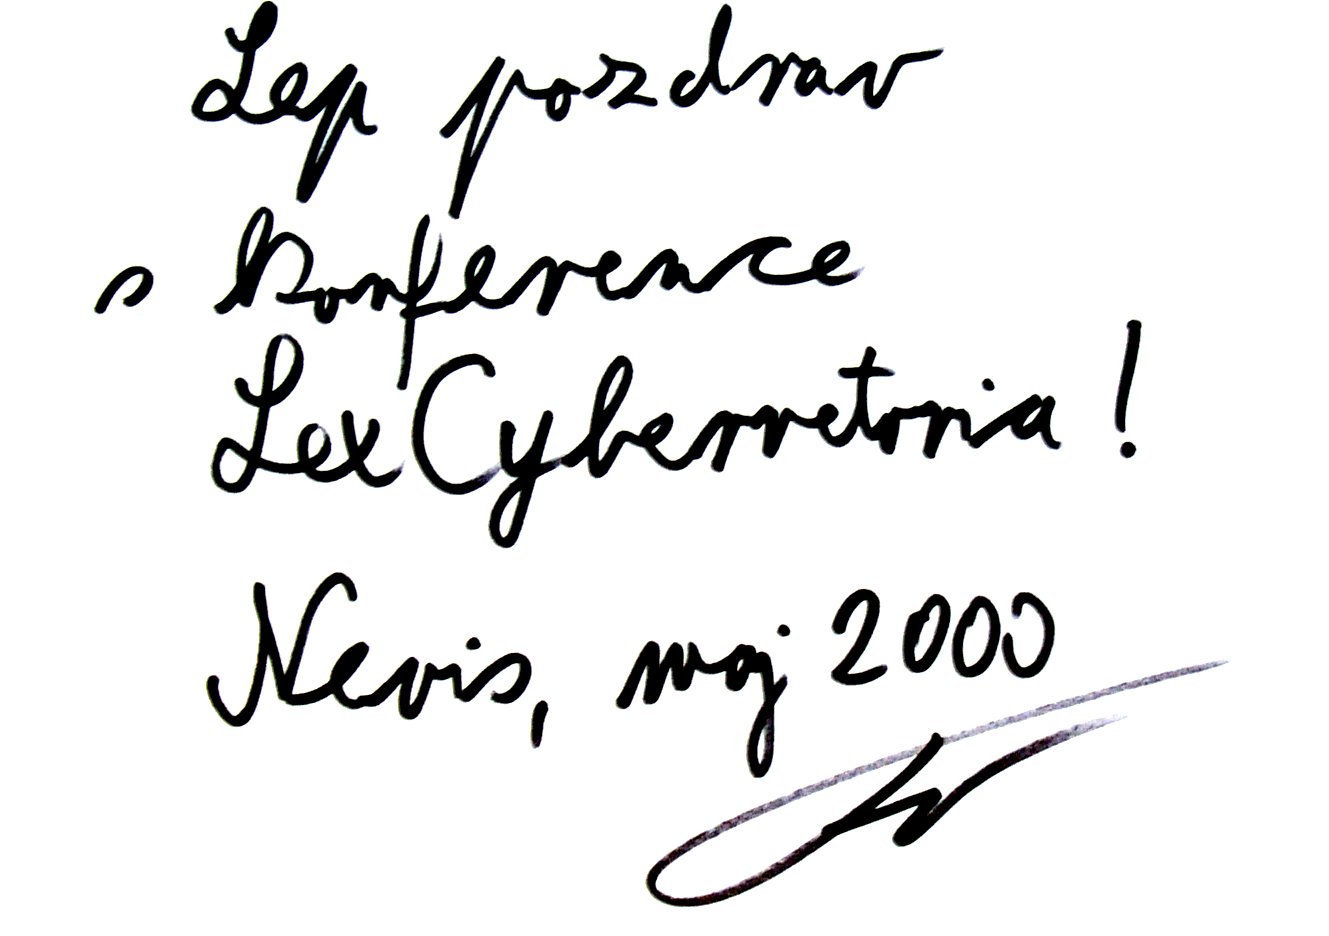 Lep pozdrav
s Konference
Lex Cyberretoria!
Nevis, maj 2000